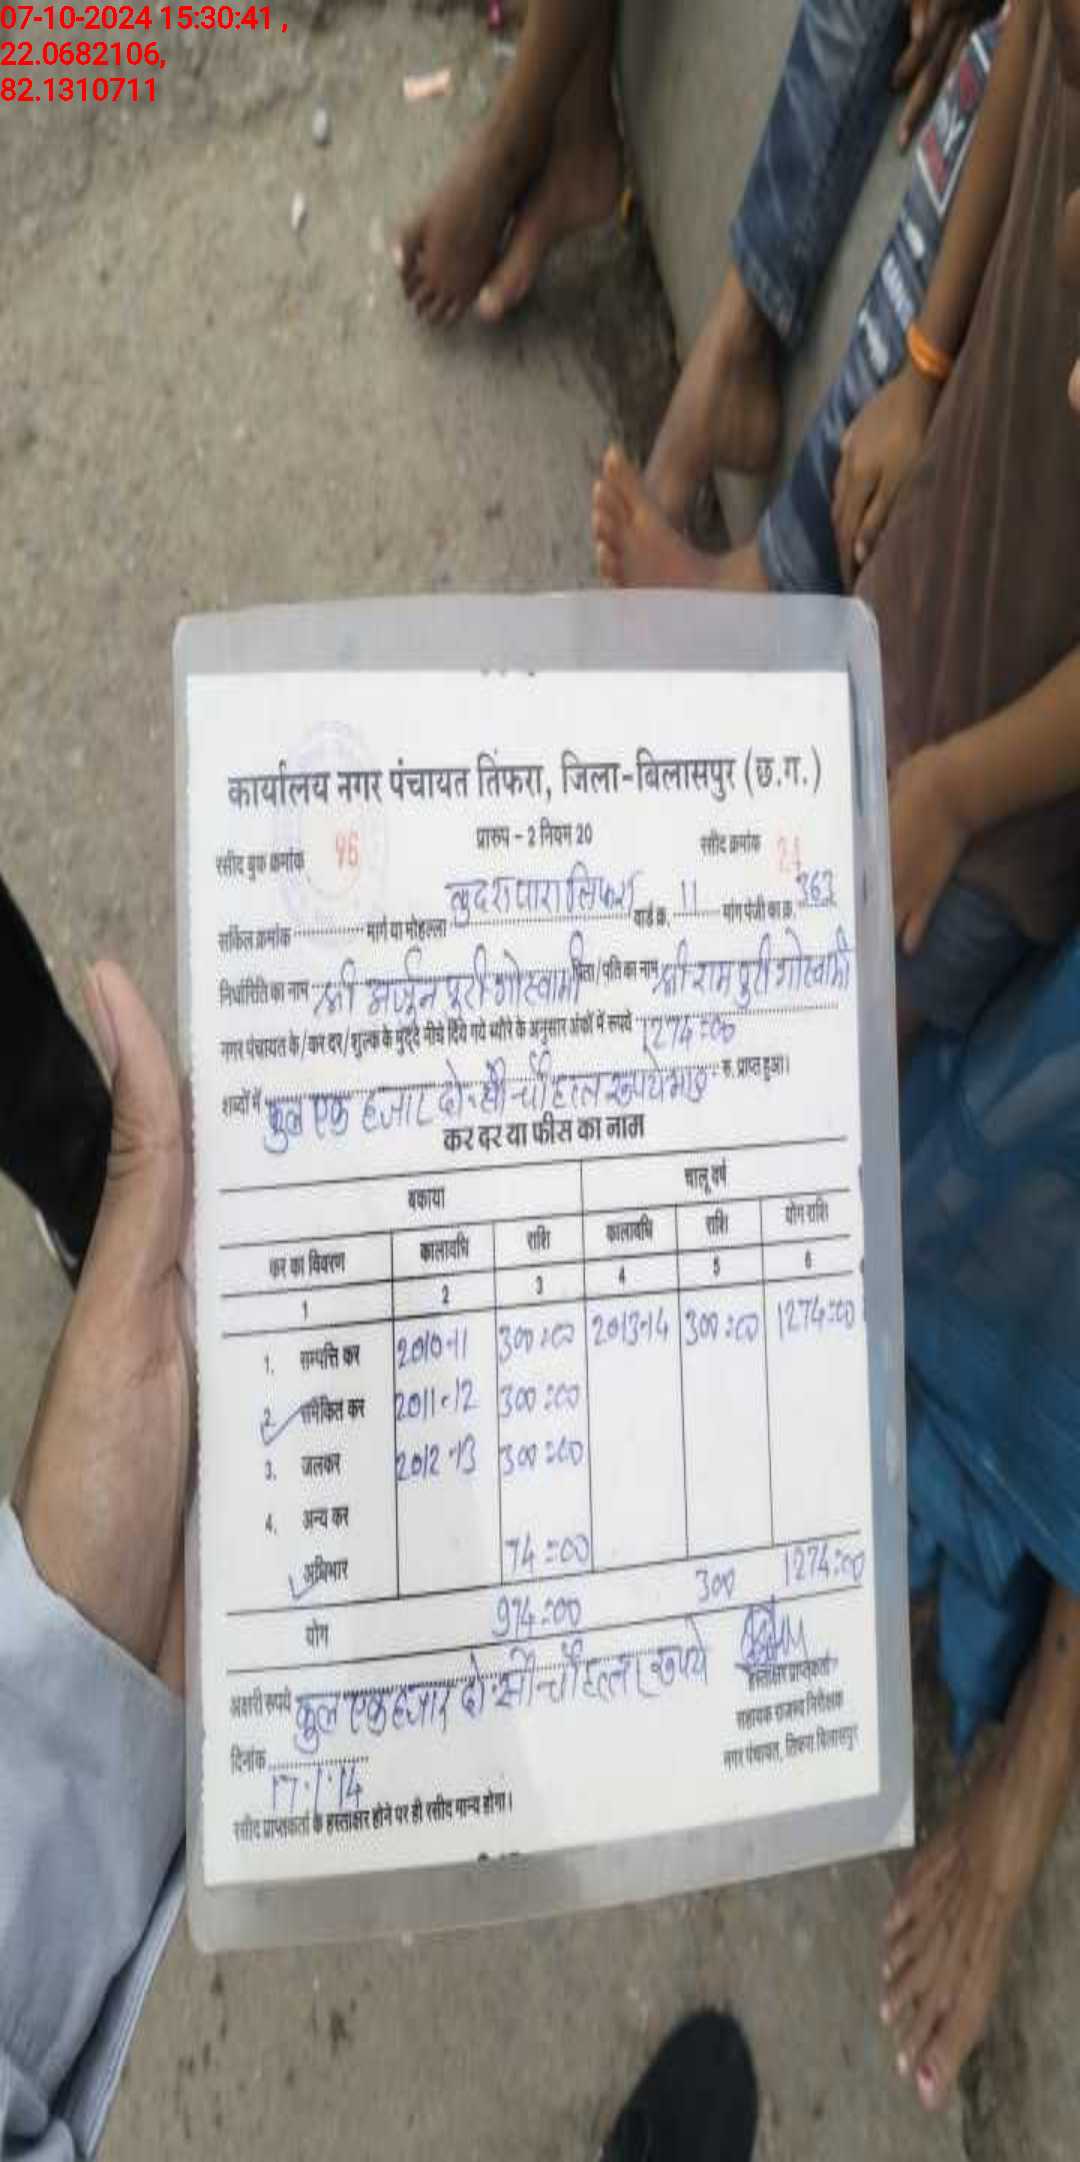 07-10-2024 15:30:41 ,
22.0682106,
82.1310711
कार्यालय नगर पंचायत तिफरा, जिला-बिलासपुर (छ.ग.)
प्रारुप - 2 नियम 20
रसीद बुक क्रमांक 46 रसीद क्रमांक 24
सर्किल क्रमांक मार्ग या मोहल्ला कुदरापारा तिफरा वार्ड क्र. 11 मांग पंजी का क्र. 363
निर्धारिति का नाम श्री अर्जुन पुरी गोस्वामी पिता/पति का नाम श्री राम पुरी गोस्वामी
नगर पंचायत के/कर दर/शुल्क के मुद्दे नीचे दिये गये ब्यौरे के अनुसार अंकों में रूपये 1274=00
शब्दों में कुल एक हजार दो सौ चौहत्तर रूपये मात्र रु. प्राप्त हुआ।
कर दर या फीस का नाम
बकाया चालू वर्ष
कर का विवरण कालावधि राशि कालावधि राशि योग राशि
1 2 3 4 5 6
1. सम्पत्ति कर 2010-11 300=00 2013-14 300=00 1274=00
2. समेकित कर 2011-12 300=00
3. जलकर 2012-13 300=00
4. अन्य कर
अधिभार 74=00
योग 974=00 300 1274=00
अक्षरी रूपये कुल एक हजार दो सौ चौहत्तर रूपये
हस्ताक्षर प्राप्तकर्ता
सहायक राजस्व निरीक्षक
नगर पंचायत, तिफरा बिलासपुर
दिनांक 17.1.14
रसीद प्राप्तकर्ता के हस्ताक्षर होने पर ही रसीद मान्य होगा।